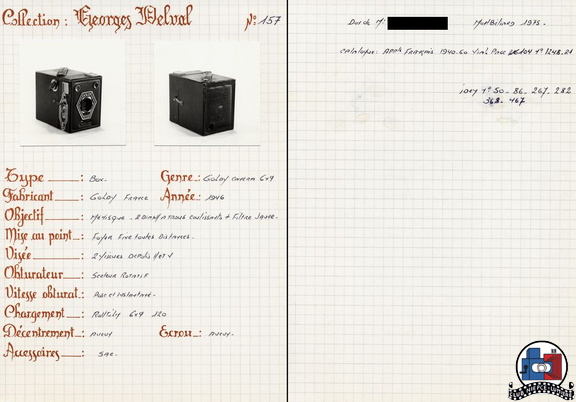 Collection : Georges Delval N: 157
Type : Box. Genre : Goldy caméra 6x9
Fabricant : Goldy France Année : 1946
Objectif : Ménisque . 2 Diaph a trous coulissants + Filtre Jaune.
Mise au point : Foyer Fixe toutes Distances.
Visée : 2 Viseurs Depolis H et V
Obturateur : Secteur Rotatif
Vitesse obturat : Pose et Instantané.
Chargement : Rollfilm 6x9 120
Décentrement : aucun Ecrou : aucun.
Accessoires : Sac.
Don de M: 1975.
Catalogue: App. Français 1940-60 N° 1248.21
idem N° 50 - 86 - 267 - 282
368 - 467